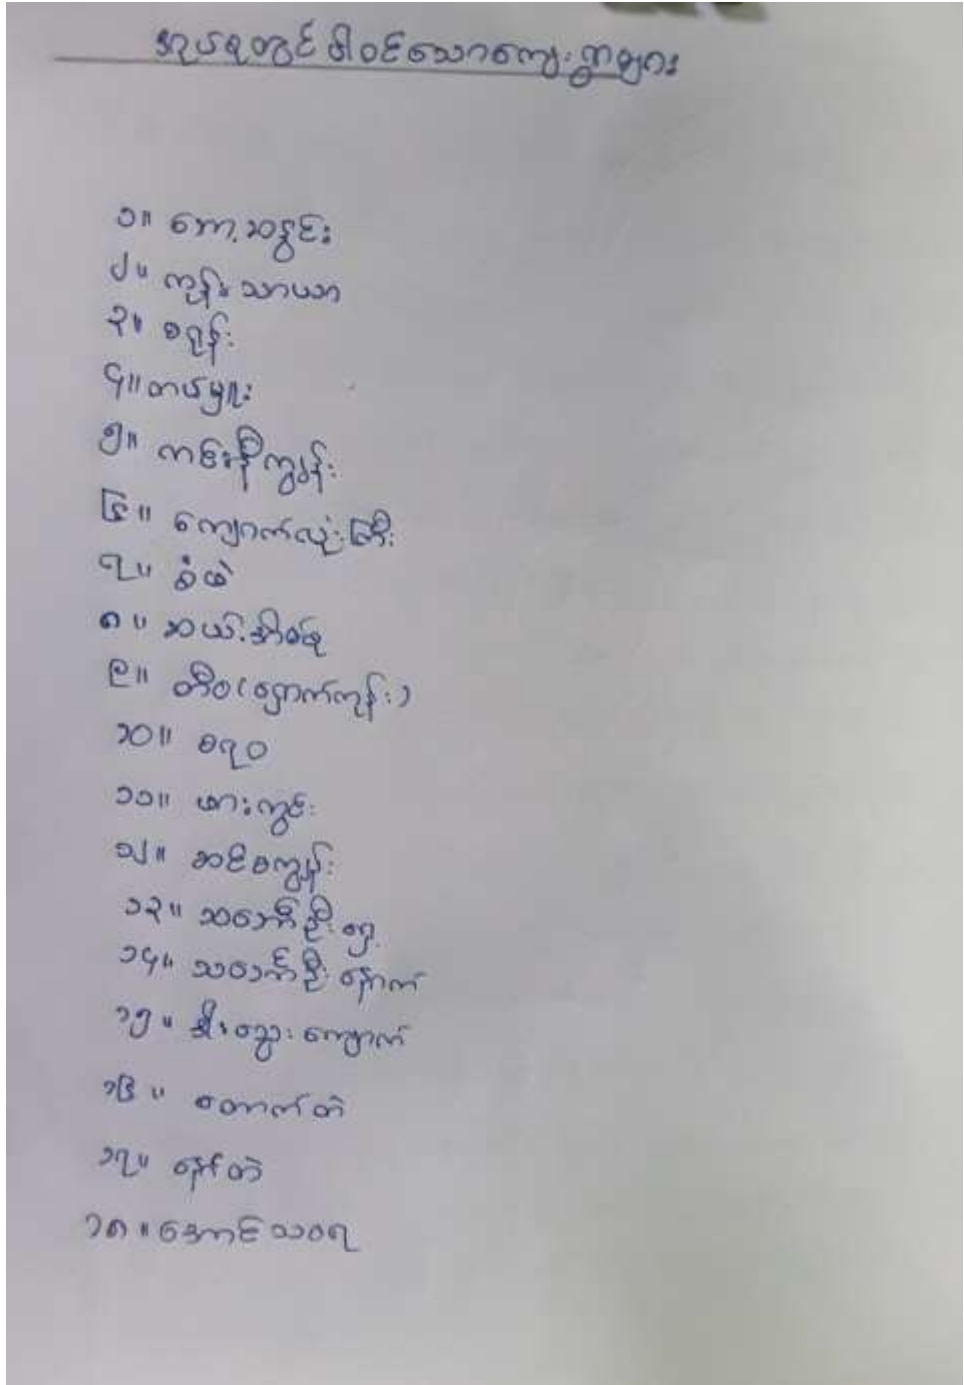 အုပ်စုတွင်ပါဝင်သောကျေးရွာများ
၁။ ကော့သနွင်း
၂။ ကျွန်းသာယာ
၃။ စရွန်း
၄။ တယ်မျှား
၅။ ကင်းနီကျွန်း
၆။ ကျောက်လုံးကြီး
၇။ စံဖဲ
၈။ ဆယ်အိမ်စု
၉။ တီဝ(ရှောက်ကုန်း)
၁၀။ စရဝ
၁၁။ ဖားကွင်း
၁၂။ ဆင်စကျွန်း
၁၃။ သင်္ဘောဦးရှေ့
၁၄။ သင်္ဘောဦးနောက်
၁၅။ မီးသွေးကျောက်
၁၆။ တောက်တဲ
၁၇။ နော်တဲ
၁၈။ အောင်သဝရ